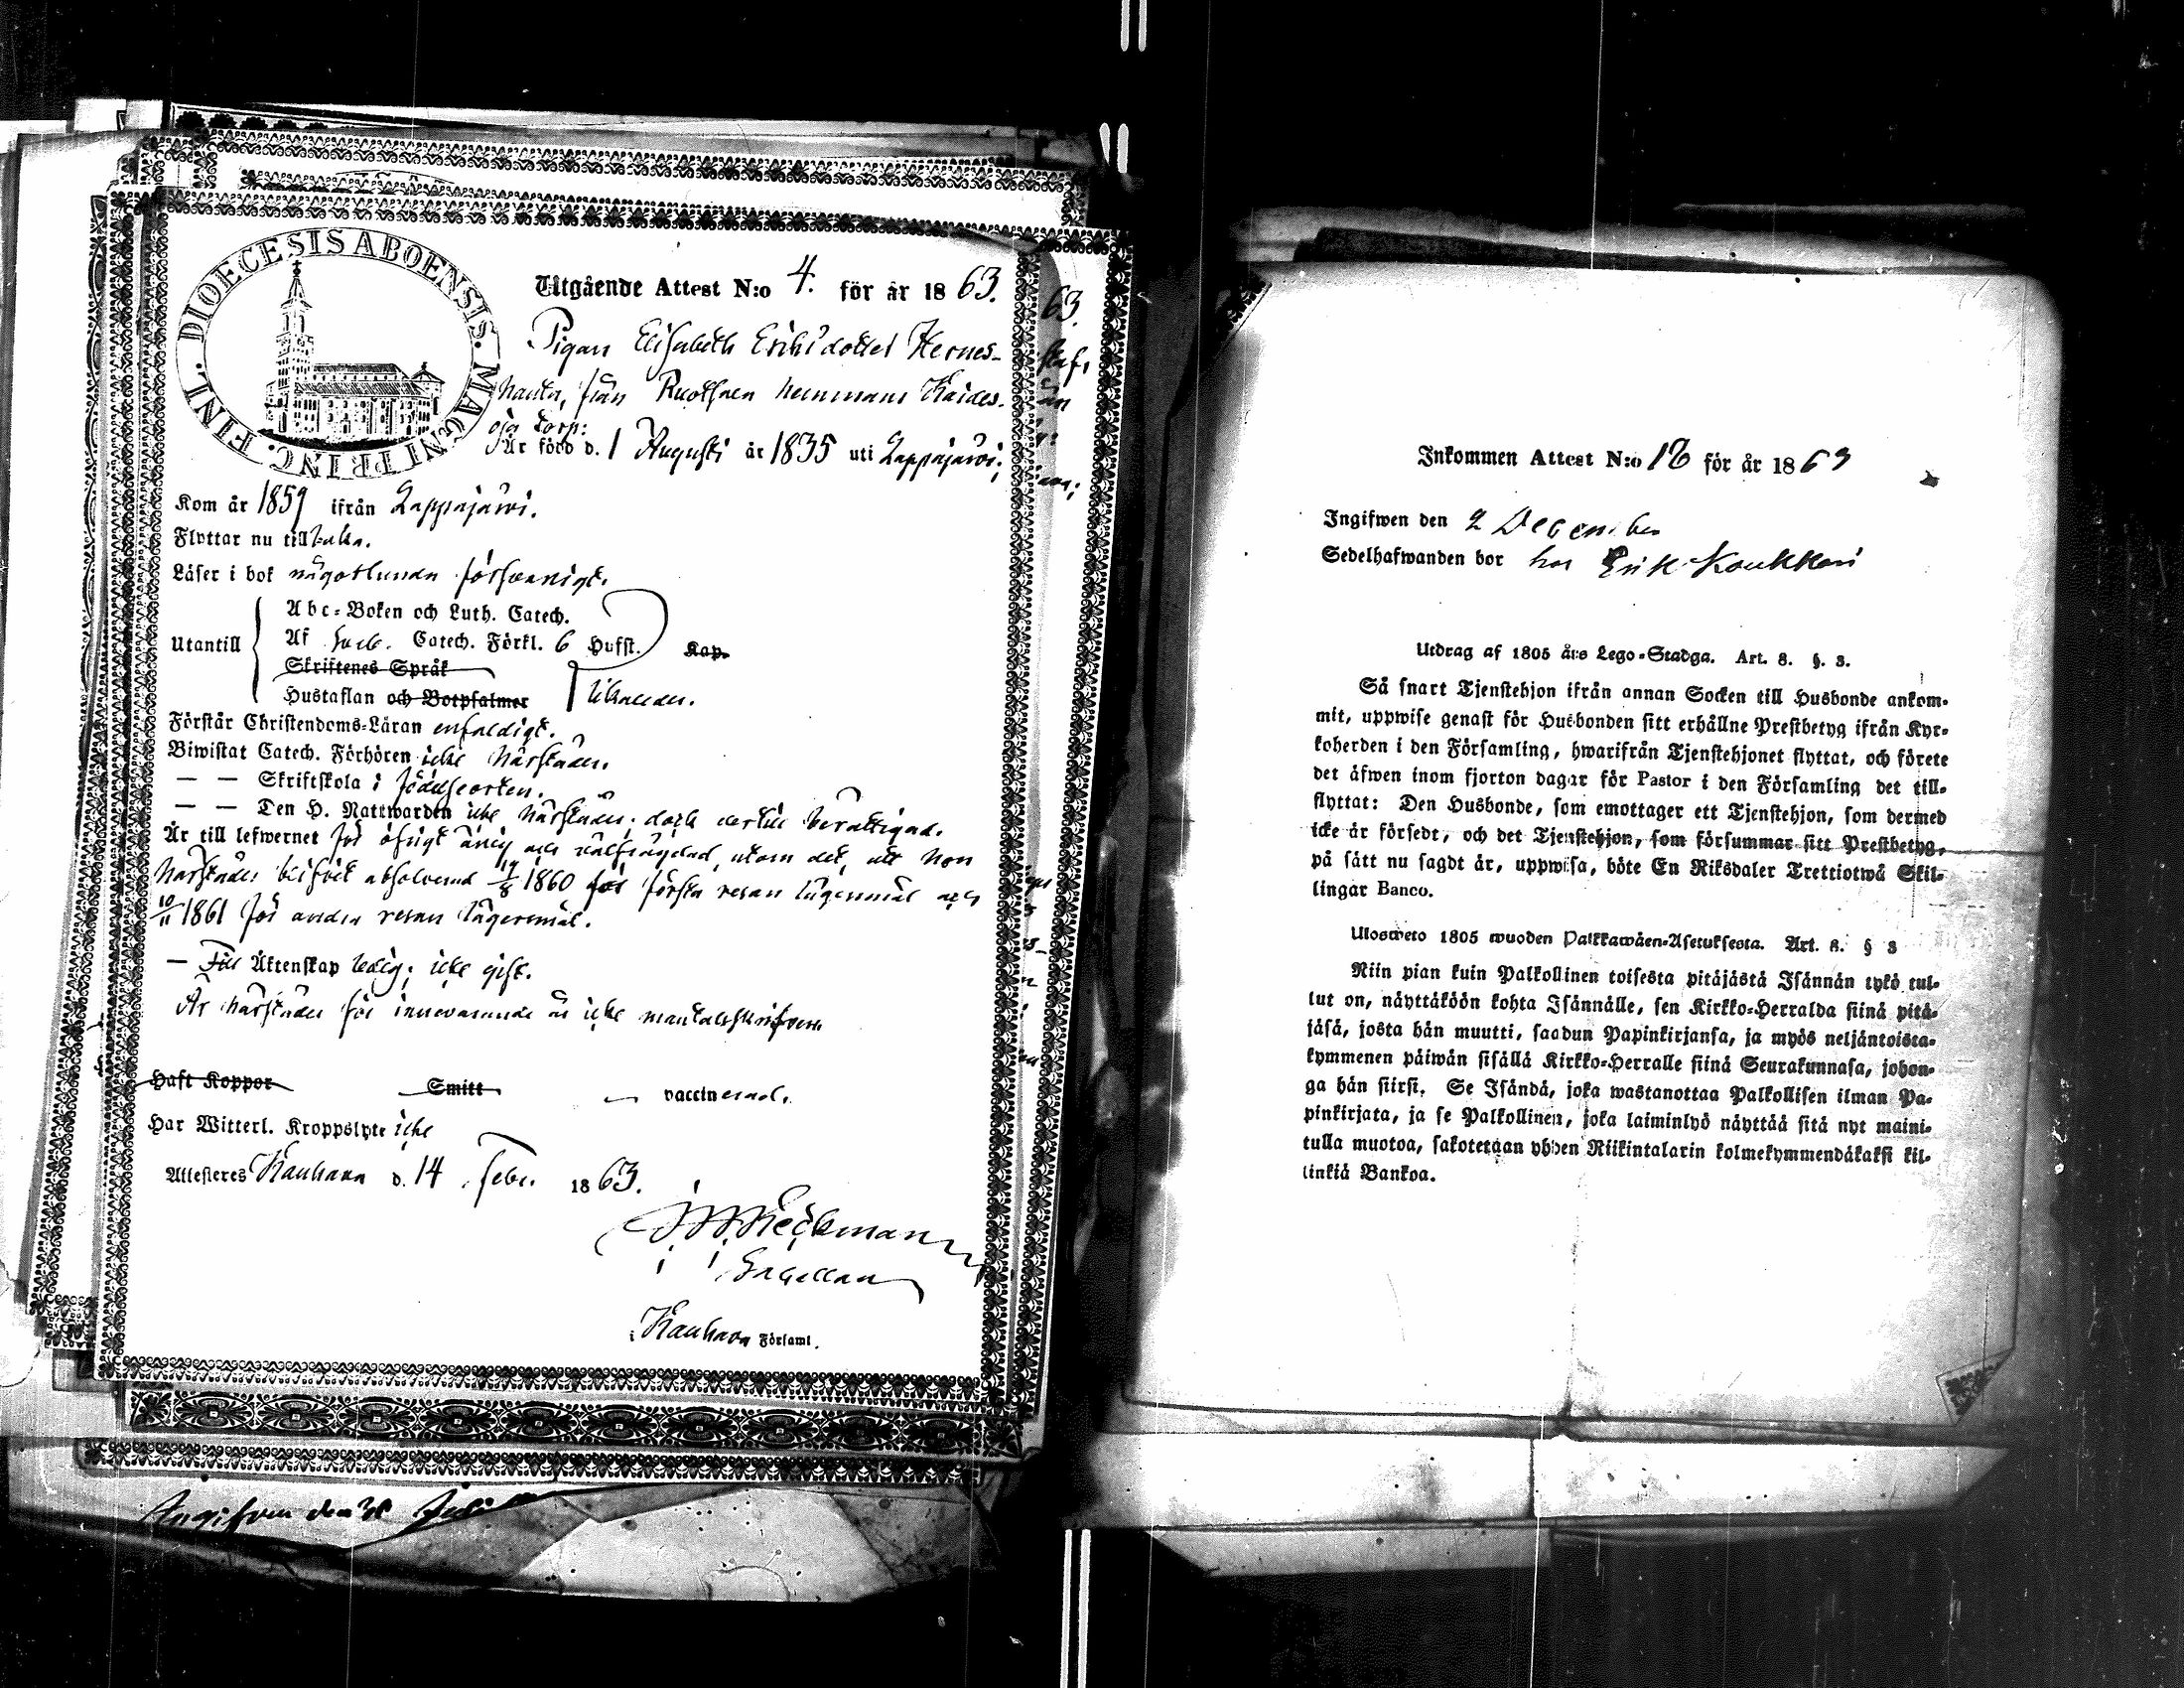 DIOECESIS ABOENSIS. MAGNI PRINC. FINL.
Utgående Attest N:o 4. för år 1863.
Pigan Elisabeth Eriksdotter Hernes-
maita, från Ruotsala hemmans Kaides-
oja torp:
Är född d. 1 Augusti år 1835 uti Lappajärvi;
Kom år 1859 ifrån Lappajärvi.
Flyttar nu tillbaka.
Läser i bok någorlunda försvarligt.
Abc-Boken och Luth. Catech.
Utantill Af Sveb. Catech. Förkl. 6 Hufst. Kap.
Skriftenes Språk
Hustaflan och Botpsalmer
Förstår Christendoms-Läran enfaldigt.
Biwistat Catech. Förhören icke härstädes.
— — Skriftskola i födelseorten.
— — Den H. Nattwarden icke härstädes; dock dertill berättigad.
Är till lefwernet för öfrigt ärlig och välfräjdad, utom det, att hon
härstädes blifvit absolverad 19/8 1860 för första resan lägersmål och
10/11 1861 för andra resan lägersmål.
— Till Äktenskap ledig; icke gift.
Är härstädes för innevarande år icke mantalsskrifven
Haft Koppor Smitt — vaccinerad.
Har Witterl. Kroppslyte icke
Attesteres Kauhava d. 14 Febr. 1863.
i Kauhava Församl.
Ingifven den 31 Juli
63.
Inkommen Attest N:o 18 för år 1863
Ingifwen den 2 December
Sedelhafwanden bor hos Erik Koukkari
Utdrag af 1805 års Lego-Stadga. Art. 8. §. 3.
Så snart Tjenstehjon ifrån annan Socken till Husbonde ankom-
mit, uppwise genast för Husbonden sitt erhållne Prestbetyg ifrån Kyr-
koherden i den Församling, hwarifrån Tjenstehjonet flyttat, och förete
det äfwen inom fjorton dagar för Pastor i den Församling det till-
flyttat: Den Husbonde, som emottager ett Tjenstehjon, som dermed
icke är försedt, och det Tjenstehjon, som försummar sitt Prestbetyg,
på sätt nu sagdt är, uppwisa, böte En Riksdaler Trettiotwå Skil-
lingar Banco.
Ulosweto 1805 wuoden Palkkawäen-Asetuksesta. Art. 8. § 3
Niin pian kuin Palkollinen toisesta pitäjästä Isännän tykö tul-
lut on, näyttäköön kohta Isännälle, sen Kirkko-Herralda siinä pitä-
jäsä, josta hän muutti, saadun Papinkirjansa, ja myös neljäntoista-
kymmenen päiwän sisällä Kirkko-Herralle siinä Seurakunnasa, johon-
ga hän siirsi. Se Isändä, joka wastanottaa Palkollisen ilman Pa-
pinkirjata, ja se Palkollinen, joka laiminlyö näyttää sitä nyt maini-
tulla muotoa, sakotetaan yhden Riikintalarin kolmekymmendäkaksi kil-
linkiä Bankoa.